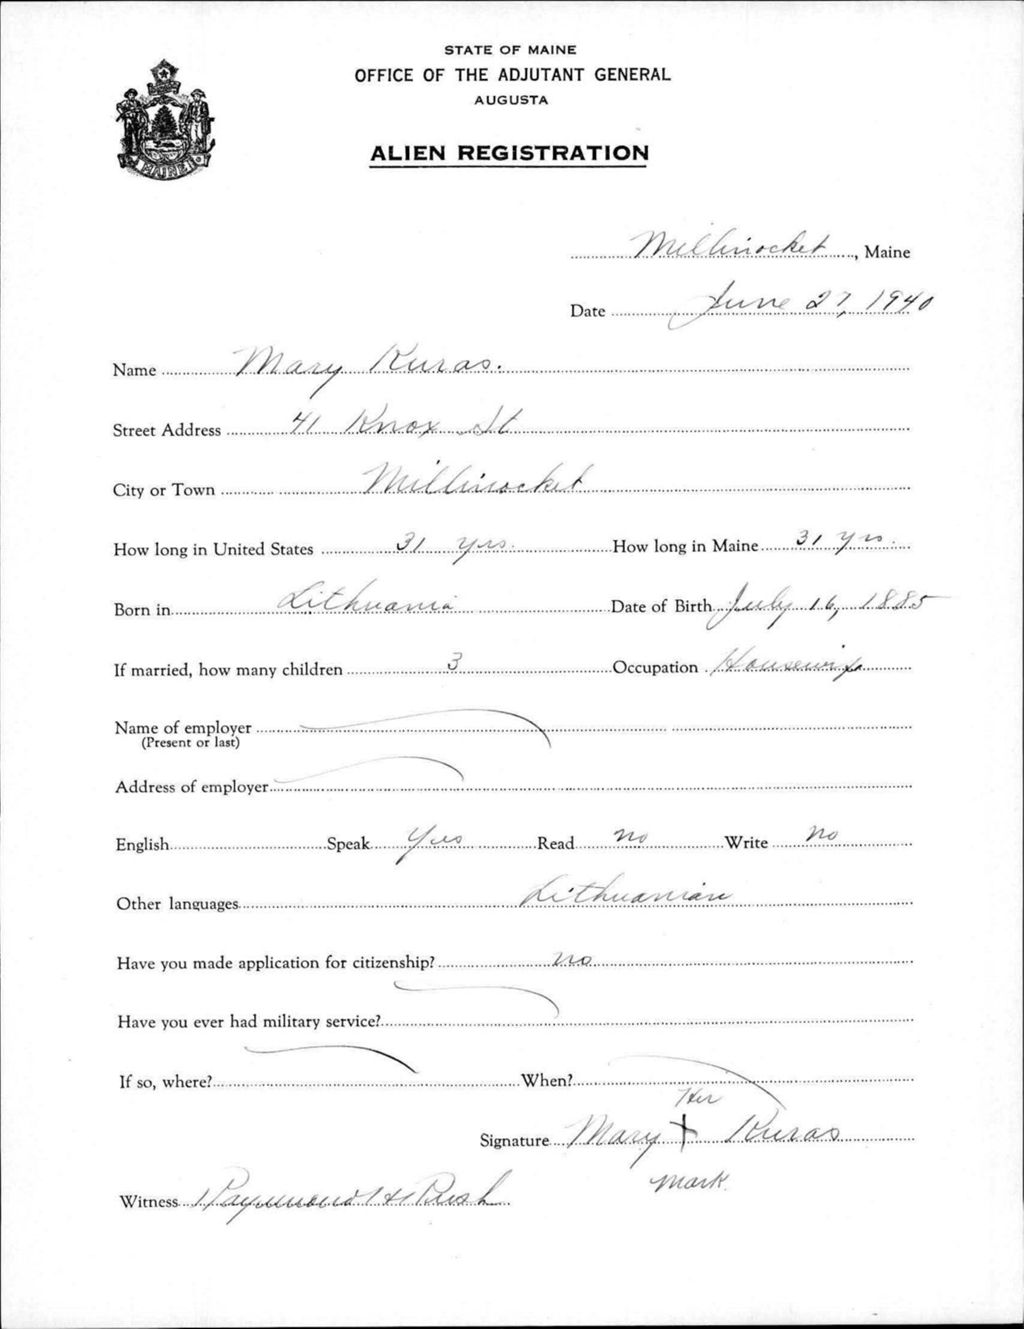 STATE OF MAINE
OFFICE OF THE ADJUTANT GENERAL
AUGUSTA
ALIEN REGISTRATION
MAINE
Millinocket, Maine
Date June 27, 1940
Name Mary Kuras.
Street Address 41 Knox St
City or Town Millinocket
How long in United States 31 yrs. How long in Maine 31 yrs.
Born in Lithuania Date of Birth July 16, 1885
If married, how many children 3 Occupation Housewife
Name of employer
(Present or last)
Address of employer
English Speak Yes Read no Write no
Other languages Lithuanian
Have you made application for citizenship? no
Have you ever had military service?
If so, where? When?
Her
Signature Mary + Kuras
mark.
Witness Raymond H Rush